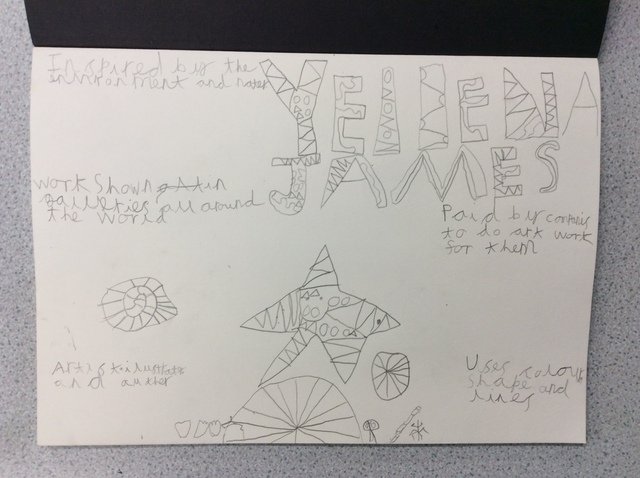 Inspired by the
environment and nater
YEllENA
JAMES
work Shown in
gallerties all around
the world
Paid by
to do art work
for them
Artist illustrate
and auther
Uses colour
Shape and
lines